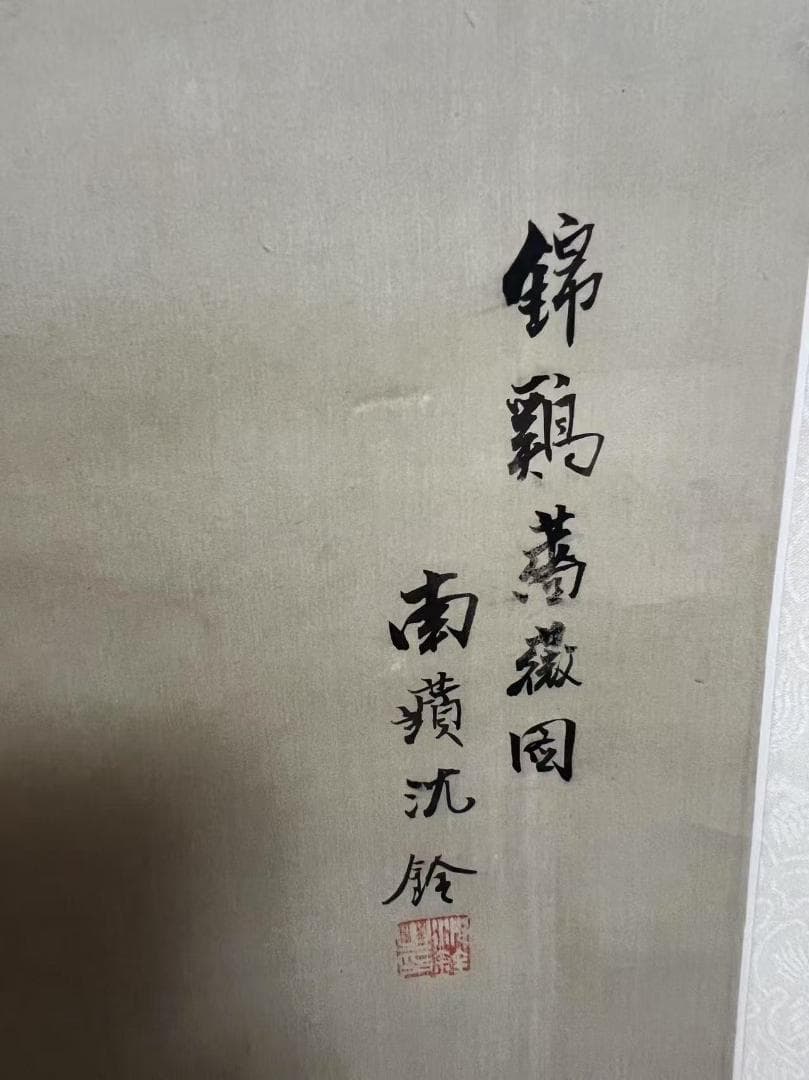 錦鷄薔薇圖
南蘋沈銓